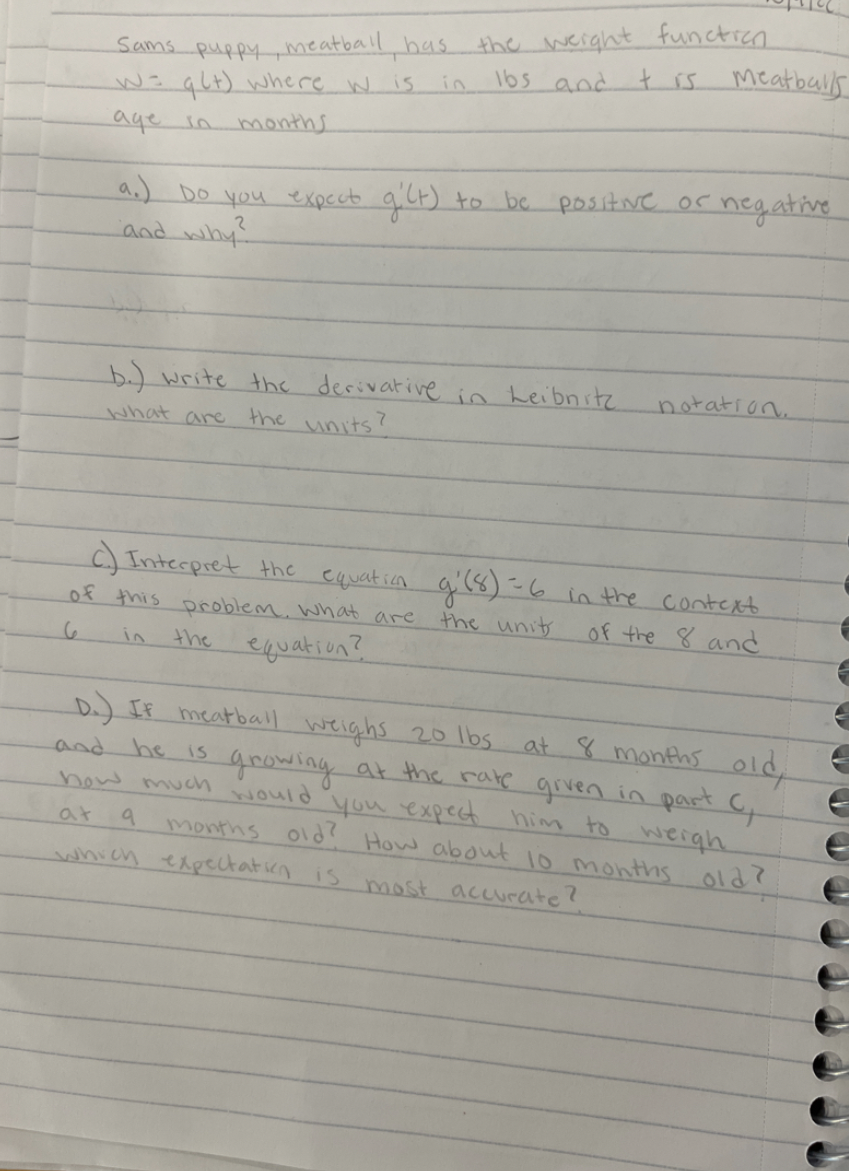 Sams puppy, meatball, has the weight function
W = g(t) where W is in lbs and t is Meatballs
age in months
a.) Do you expect g'(t) to be positive or negative
and why?
b.) write the derivative in Leibnitz notation.
what are the units?
C.) Interpret the equation g'(8)=6 in the context
of this problem. What are the units of the 8 and
6 in the equation?
D.) If meatball weighs 20 lbs at 8 months old,
and he is growing at the rate given in part C,
how much would you expect him to weigh
at 9 months old? How about 10 months old?
which expectation is most accurate?